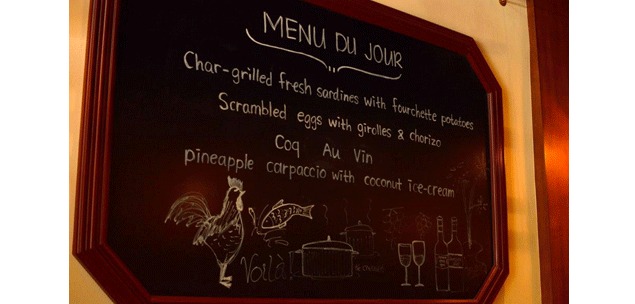 MENU DU JOUR
Char-grilled fresh sardines with fourchette potatoes
Scrambled eggs with girolles & chorizo
Coq Au Vin
pineapple carpaccio with coconut ice-cream
Voilà!